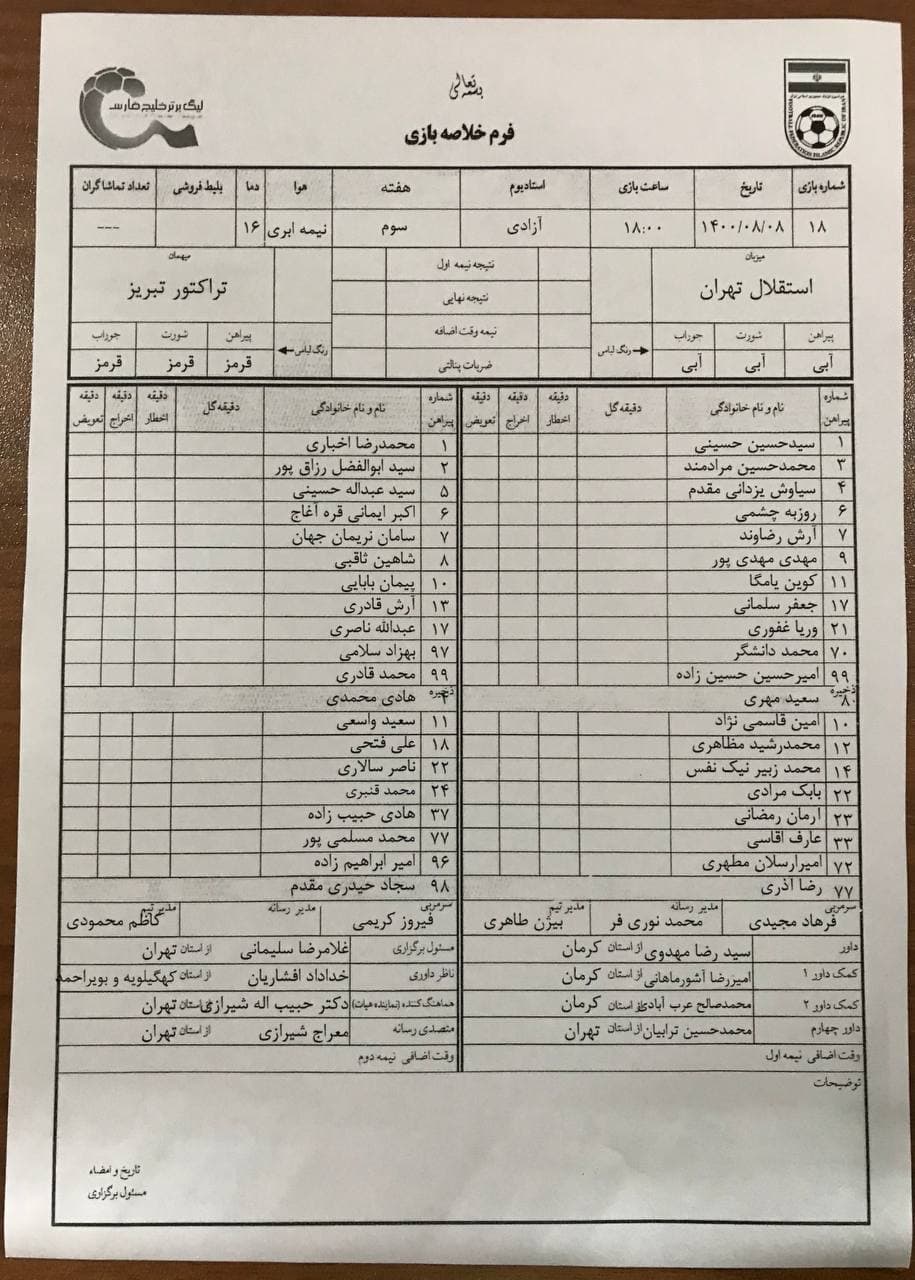 بسمه تعالی
لیگ برتر خلیج فارس
FOOTBALL FEDERATION ISLAMIC REPUBLIC OF IRAN
فرم خلاصه بازی
شماره بازی تاریخ ساعت بازی استادیوم هفته هوا دما بلیط فروشی تعداد تماشاگران
۱۸ ۱۴۰۰/۰۸/۰۸ ۱۸:۰۰ آزادی سوم نیمه ابری ۱۶ ---
میزبان نتیجه نیمه اول میهمان
استقلال تهران نتیجه نهایی تراکتور تبریز
نیمه وقت اضافه
پیراهن شورت جوراب رنگ لباس ضربات پنالتی رنگ لباس پیراهن شورت جوراب
آبی آبی آبی قرمز قرمز قرمز
شماره پیراهن نام و نام خانوادگی دقیقه گل دقیقه اخطار دقیقه اخراج دقیقه تعویض
۱ سیدحسین حسینی
۳ محمدحسین مرادمند
۴ سیاوش یزدانی مقدم
۶ روزبه چشمی
۷ آرش رضاوند
۹ مهدی مهدی پور
۱۱ کوین یامگا
۱۷ جعفر سلمانی
۲۱ وریا غفوری
۷۰ محمد دانشگر
۹۹ امیرحسین حسین زاده
ذخیره
۸ سعید مهری
۱۰ امین قاسمی نژاد
۱۲ محمدرشید مظاهری
۱۴ محمد زبیر نیک نفس
۲۲ بابک مرادی
۲۳ ارمان رمضانی
۳۳ عارف اقاسی
۷۲ امیرارسلان مطهری
۷۷ رضا آذری
سرمربی فرهاد مجیدی مدیر رسانه محمد نوری فر مدیر تیم بیژن طاهری
داور سید رضا مهدوی از استان کرمان
کمک داور ۱ امیررضا آشورماهانی از استان کرمان
کمک داور ۲ محمدصالح عرب آبادی از استان کرمان
داور چهارم محمدحسین ترابیان از استان تهران
وقت اضافی نیمه اول
شماره پیراهن نام و نام خانوادگی دقیقه گل دقیقه اخطار دقیقه اخراج دقیقه تعویض
۱ محمدرضا اخباری
۲ سید ابوالفضل رزاق پور
۵ سید عبداله حسینی
۶ اکبر ایمانی قره آغاج
۷ سامان نریمان جهان
۸ شاهین ثاقبی
۱۰ پیمان بابایی
۱۳ آرش قادری
۱۷ عبدالله ناصری
۹۷ بهزاد سلامی
۹۹ محمد قادری
ذخیره
هادی محمدی
۱۱ سعید واسعی
۱۸ علی فتحی
۲۲ ناصر سالاری
۲۴ محمد قنبری
۳۷ هادی حبیب زاده
۷۷ محمد مسلمی پور
۹۶ امیر ابراهیم زاده
۹۸ سجاد حیدری مقدم
سرمربی فیروز کریمی مدیر رسانه مدیر تیم کاظم محمودی
مسئول برگزاری غلامرضا سلیمانی از استان تهران
ناظر داوری خداداد افشاریان از استان کهگیلویه و بویراحمد
هماهنگ کننده (نماینده هیات) دکتر حبیب اله شیرازی از استان تهران
متصدی رسانه معراج شیرازی از استان تهران
وقت اضافی نیمه دوم
توضیحات
تاریخ و امضاء
مسئول برگزاری